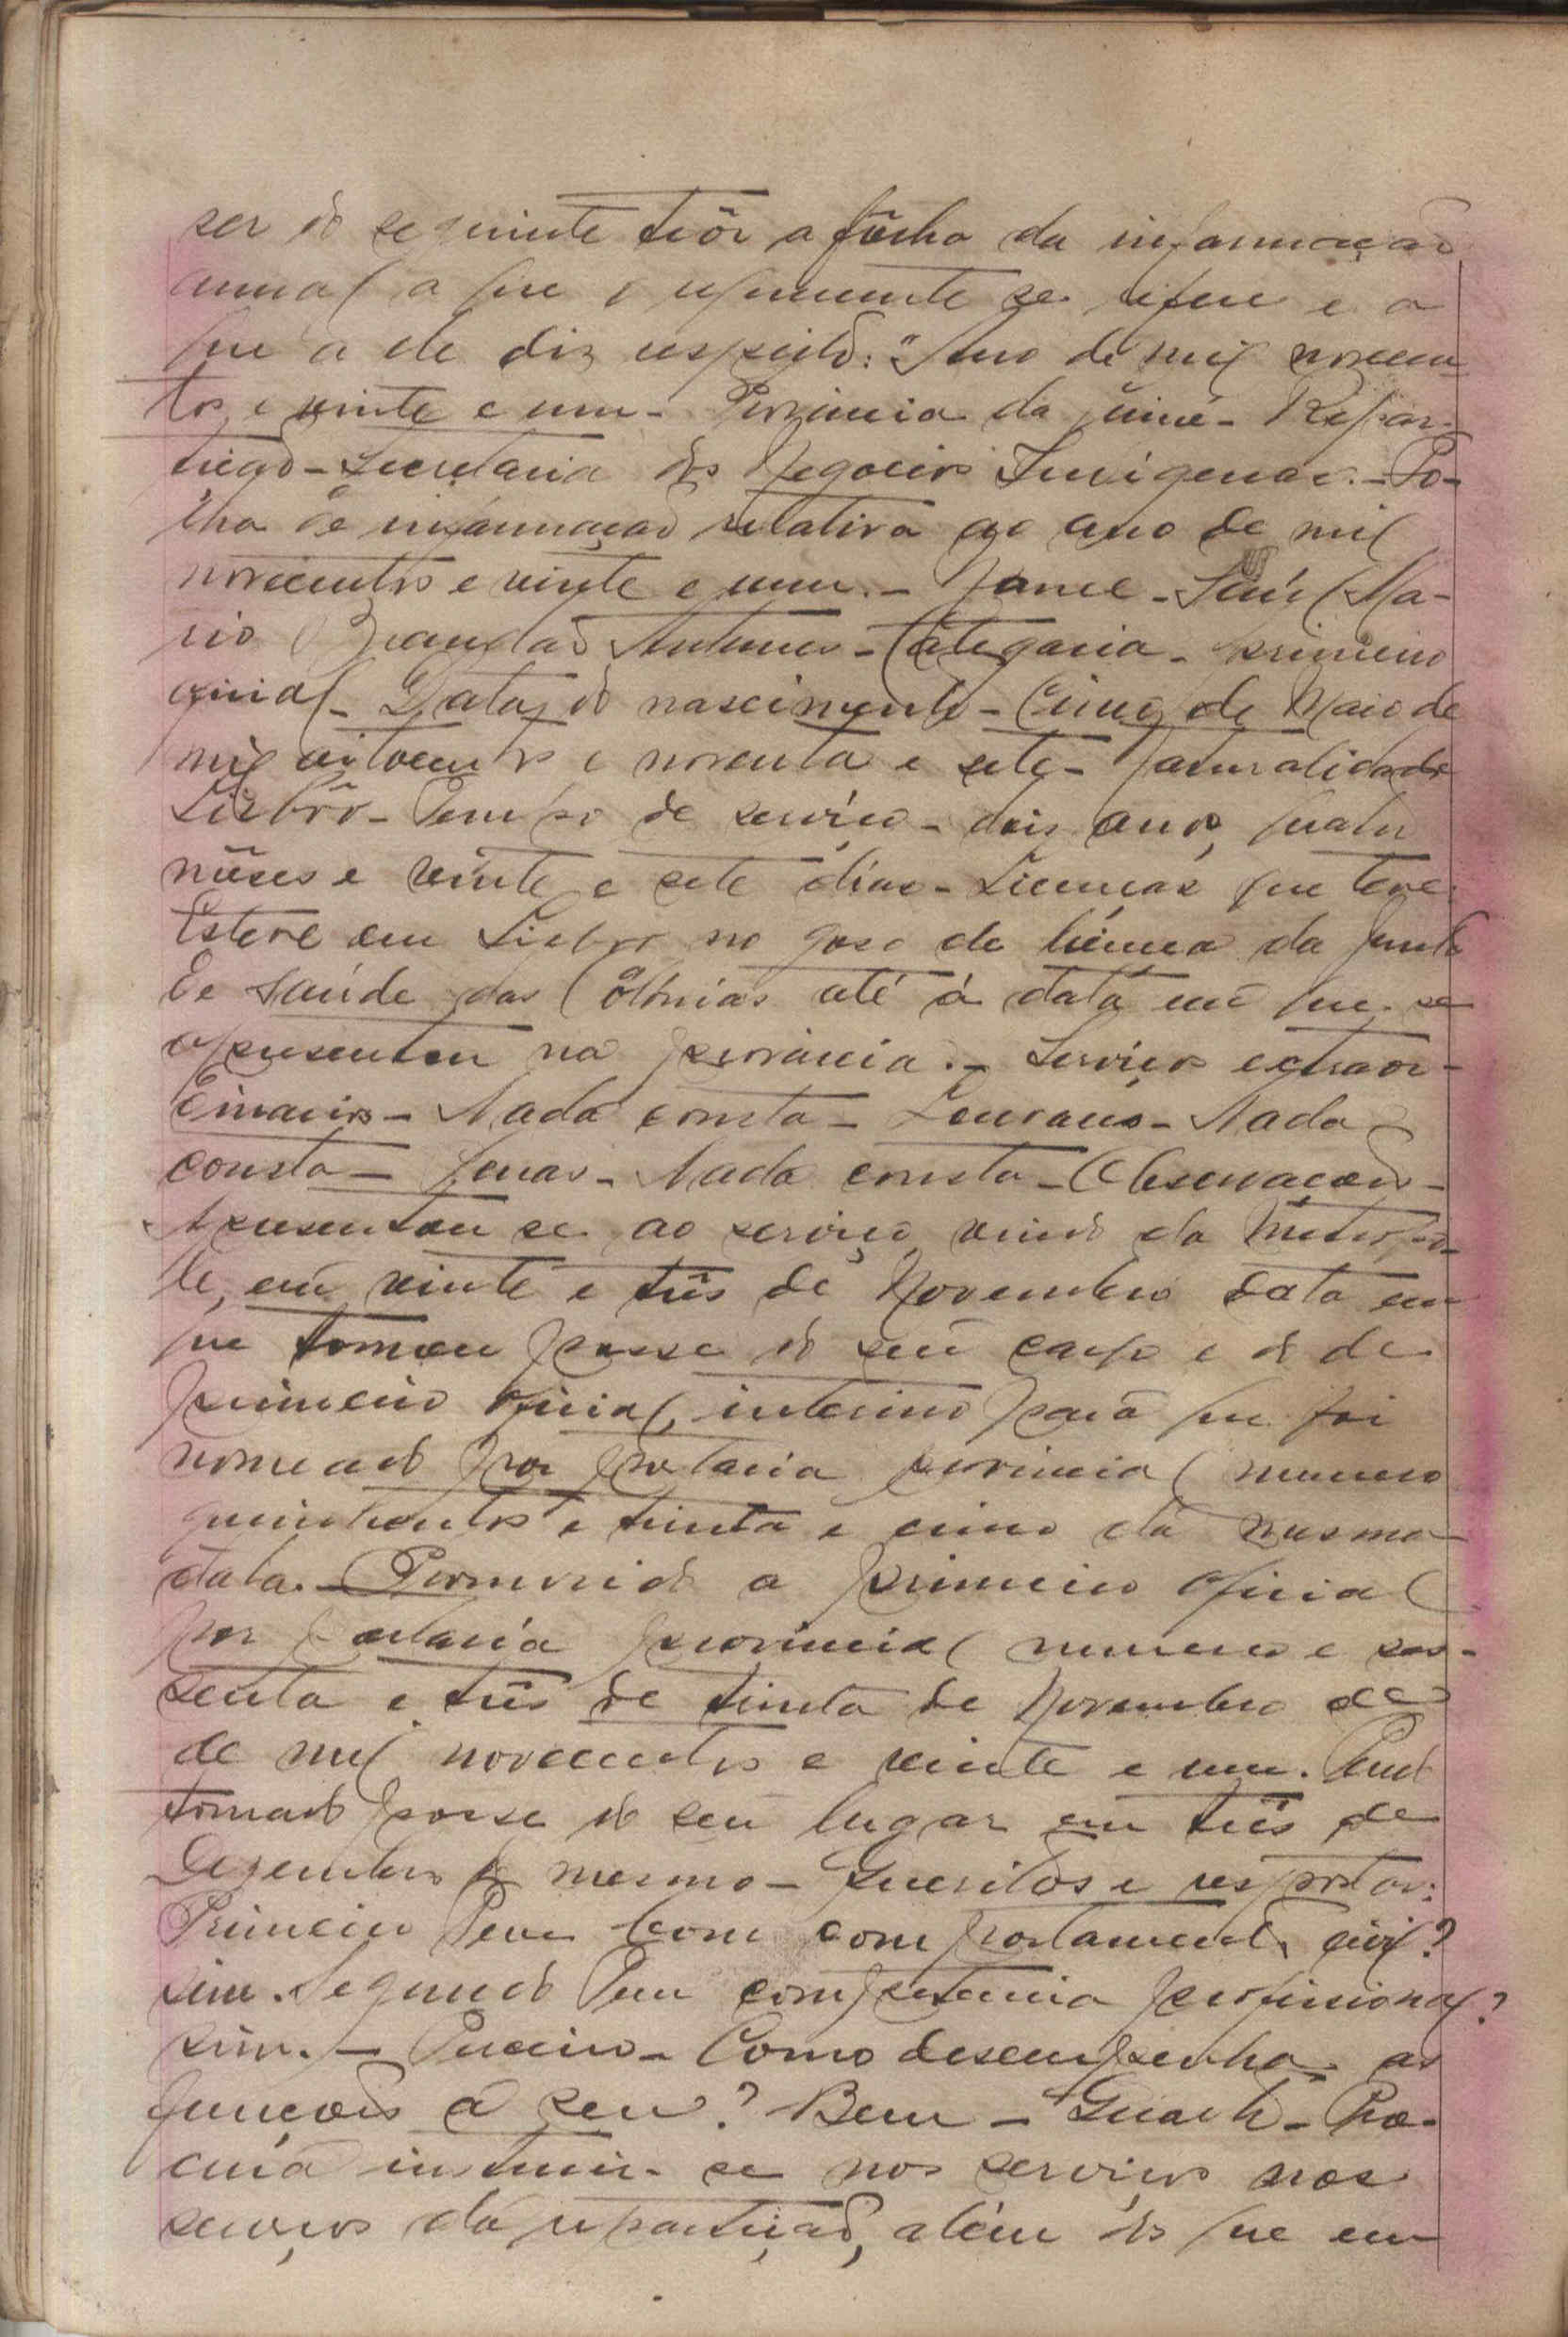 ser do seguinte teôr a fôlha da informação
anual a que o requerente se refere e a
que a ele diz respeito: "Ano de mil novecen-
tos e vinte e um - Provincia da Guiné - Repar-
tição - Secretaria dos Negocios Indigenas. - Fo-
lha de informação relativa ao ano de mil
novecentos e vinte e um. - Nome - Saúl Ma-
rio Brandão Antunes - Categoria - primeiro
oficial - Data do nascimento - Cinco de Maio de
mil oitocentos e noventa e sete - Naturalidade
Lisbôa - Tempo de serviço - dois anos, quatro
mêses e vinte e sete dias - Licenças que teve.
Esteve em Lisboa no goso de licença da Junta
de Saúde das Colónias até á data em que se
apresentou na provincia. - Serviços extraor-
dinarios - Nada consta - Louvores - Nada
consta - Penas - Nada consta - Observações -
Apresentou se ao serviço, vindo da Metropo-
le, em vinte e três de Novembro data em
que tomou posse do seu cargo e do de
primeiro oficial, interino para que foi
nomeado por portaria provincial numero
quinhentos e trinta e cinco da mesma
data. - Promovido a primeiro oficial
por portaria provincial numero e ses-
senta e três de trinta de Novembro de
de mil novecentos e vinte e um. Tendo
tomado posse do seu lugar em três de
Dezembro do mesmo - Quesitos e respostas:
Primeiro Tem bom comportamento civil?
sim. Segundo Tem competencia profissional?
sim. - Terceiro - Como desempenha as
funções a seu? Bem - Quarto - Pro-
cura instruir-se nos serviços nos
serviços da repartição, além dos que em